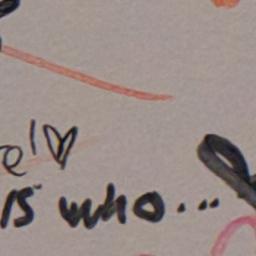 e!♡
is who...